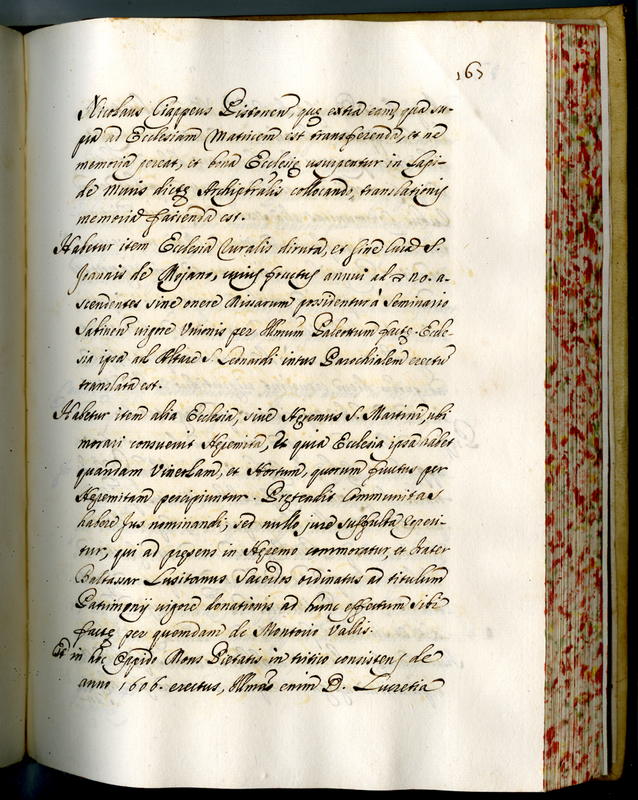 163
Nicolaus Ciappeus Pistorien, que extra eam, qua su-
pra ad Ecclesiam Matricem est transferenda, et ne
memoria pereat, et bona Ecclesię usurpentur in lapi-
de muris dictę Archipbralis collocando, translationis
memoria facienda est.
Habetur item Ecclesia Curalis diruta, et sine Cura S.
Joannis de Mojano, cuius fructus annui ad no. a-
scendentes sine onere Missarum possidentur à Seminario
Sabinen vigore Unionis per Illmum Paleottum factę. Eccle-
sia ipsa ad Altare S. Leonardi intus Parochialem erectu
translata est.
Habetur item alia Ecclesia, sive Heremus S. Martini, ubi
morari consuevit Heremita, et quia Ecclesia ipsa habet
quandam Vineolam, et Hortum, quorum fructus per
Heremitam percipiuntur. Prętendit Communitas
habere Jus nominandi, sed nullo jure suffulta reperi-
tur, qui ad pręsens in Heremo commoratur, et frater
Baltassar Lusitanus Sacerdos ordinatus ad titulum
Patrimonij vigore donationis ad hunc effectum sibi
factę per quendam de Montorio Vallis.
Est in hoc Oppido Mons Pietatis in tritico consistens de
anno 1606. erectus, Illma enim D. Lucretia